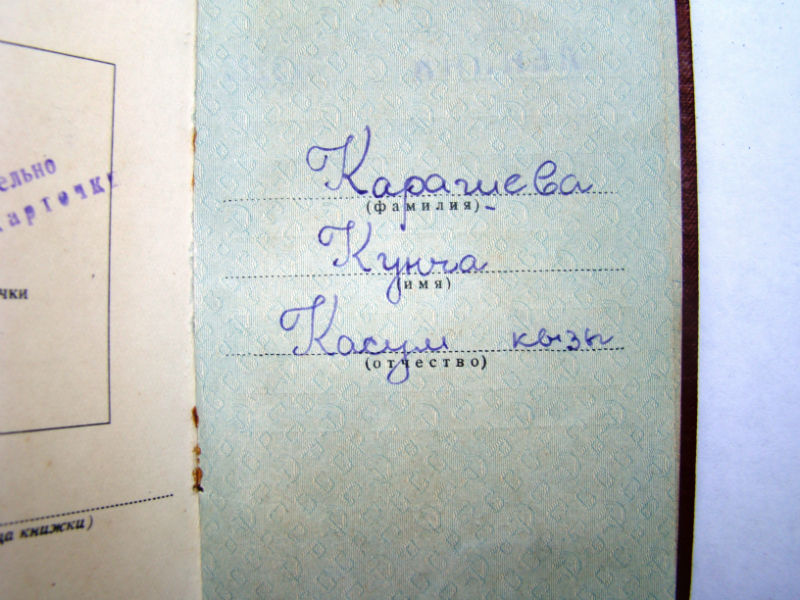 ельно
карточки
чки
ца книжки)
Карагиева
(фамилия)
Кунча
(имя)
Касум кызы
(отчество)